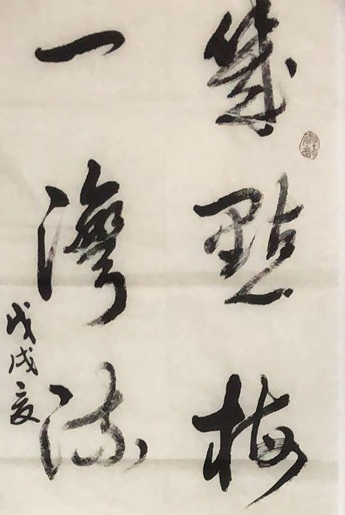 幾點梅
一灣流
戊戌夏